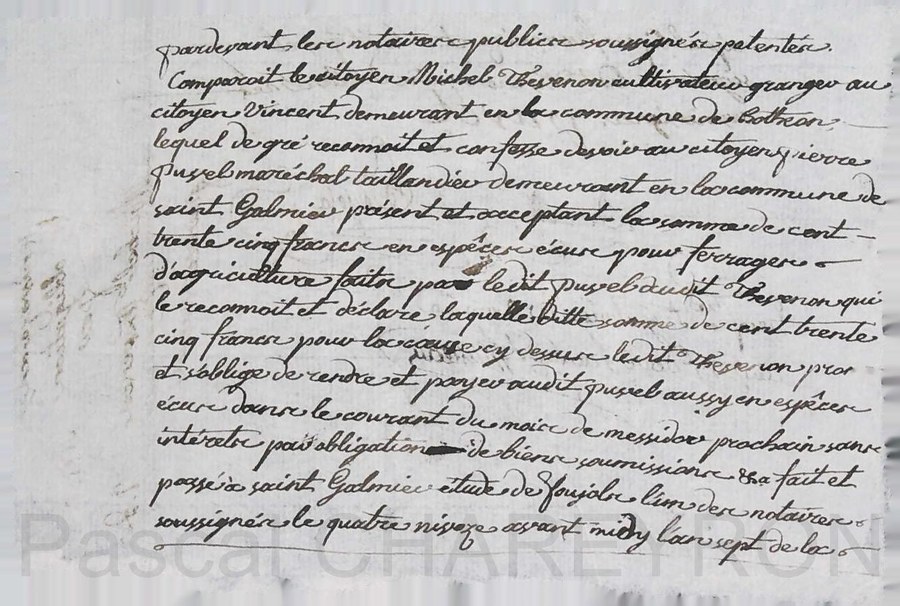 pardevant les notaires publics soussignés patentés.
Comparoit le citoyen Michel Thevenon cultivateur granger au
citoyen Vincent demeurant en la commune de Bothéon
lequel de gré reconnoit et confesse devoir au citoyen pierre
Pupel maréchal taillandier demeurant en la commune de
saint Galmier présent et acceptant la somme de cent
trente cinq francs en espêces écus pour ferrages
d'agriculture faits par ledit pupel audit Thevenon qui
le reconnoit et déclare laquelle ditte somme de cent trente
cinq francs pour la cause cy dessus ledit Thevenon prom
et s'oblige de rendre et payer audit pupel aussy en espêces
écus dans le courant du mois de messidor prochain sans
intérets par obligation de biens soumissions &a fait et
passé à saint Galmier étude de foujols l'un des notaires
soussignés le quatre nivoze avant midy l'an sept de la
Pascal CHAREYRON